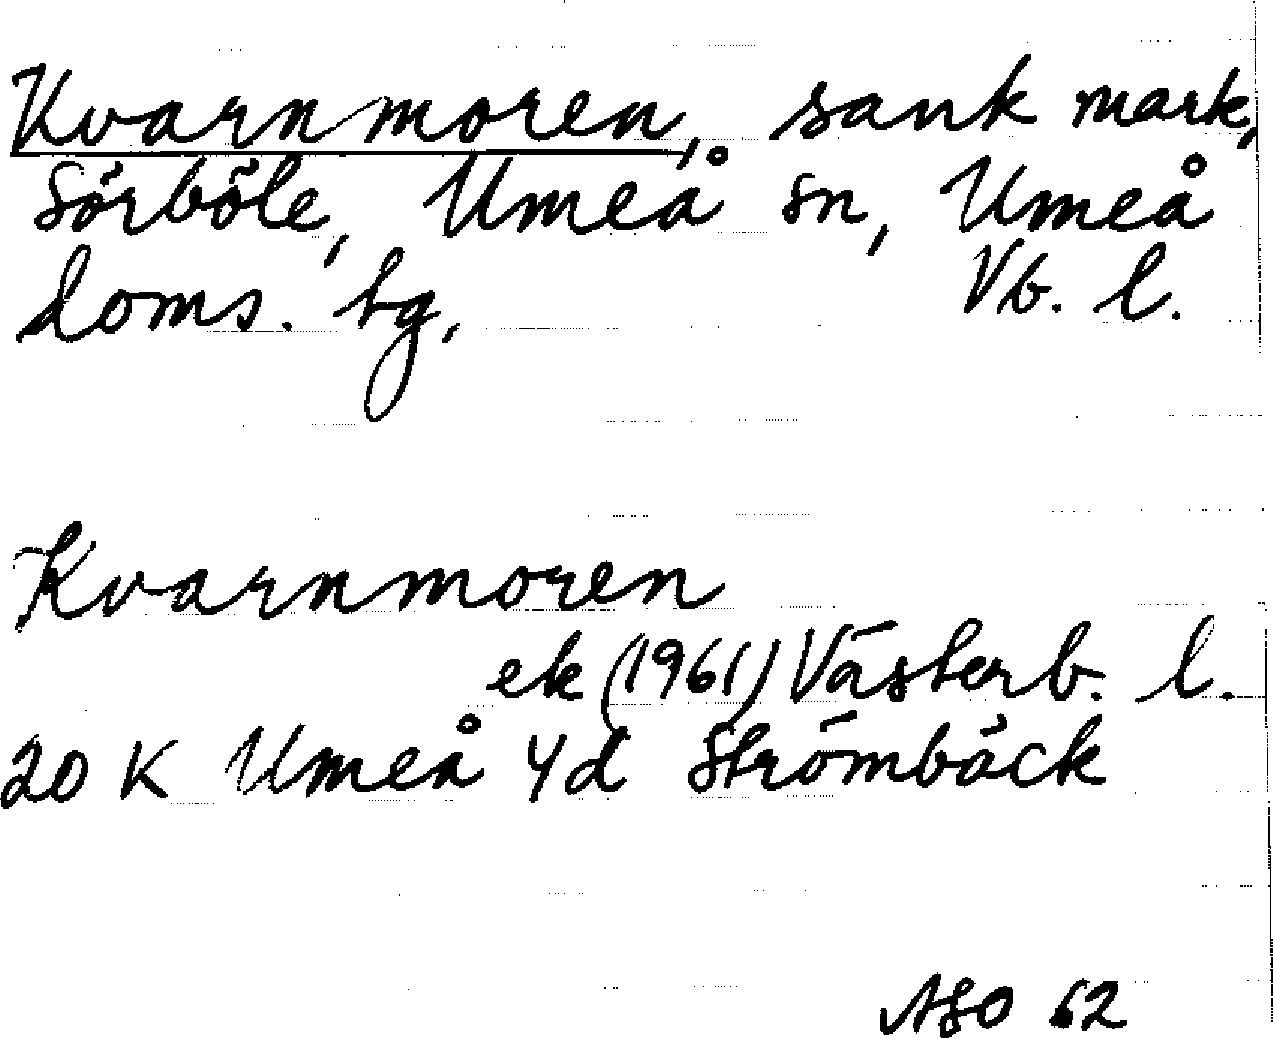 Kvarnmoren, sank mark,
Sörböle, Umeå sn, Umeå
doms. hg, Vb. l.
Kvarnmoren
ek (1961) Västerb. l.
20 K Umeå 4d Strömbäck
ASO 62